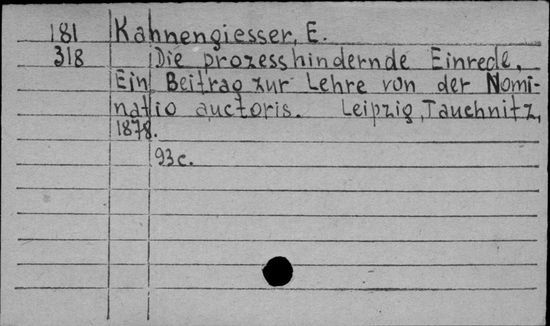 181 Kahnengiesser, E.
318 Die prozesshindernde Einrede,
Ein Beitrag zur Lehre von der Nomi-
natio auctoris. Leipzig, Tauchnitz,
1878.
93c.